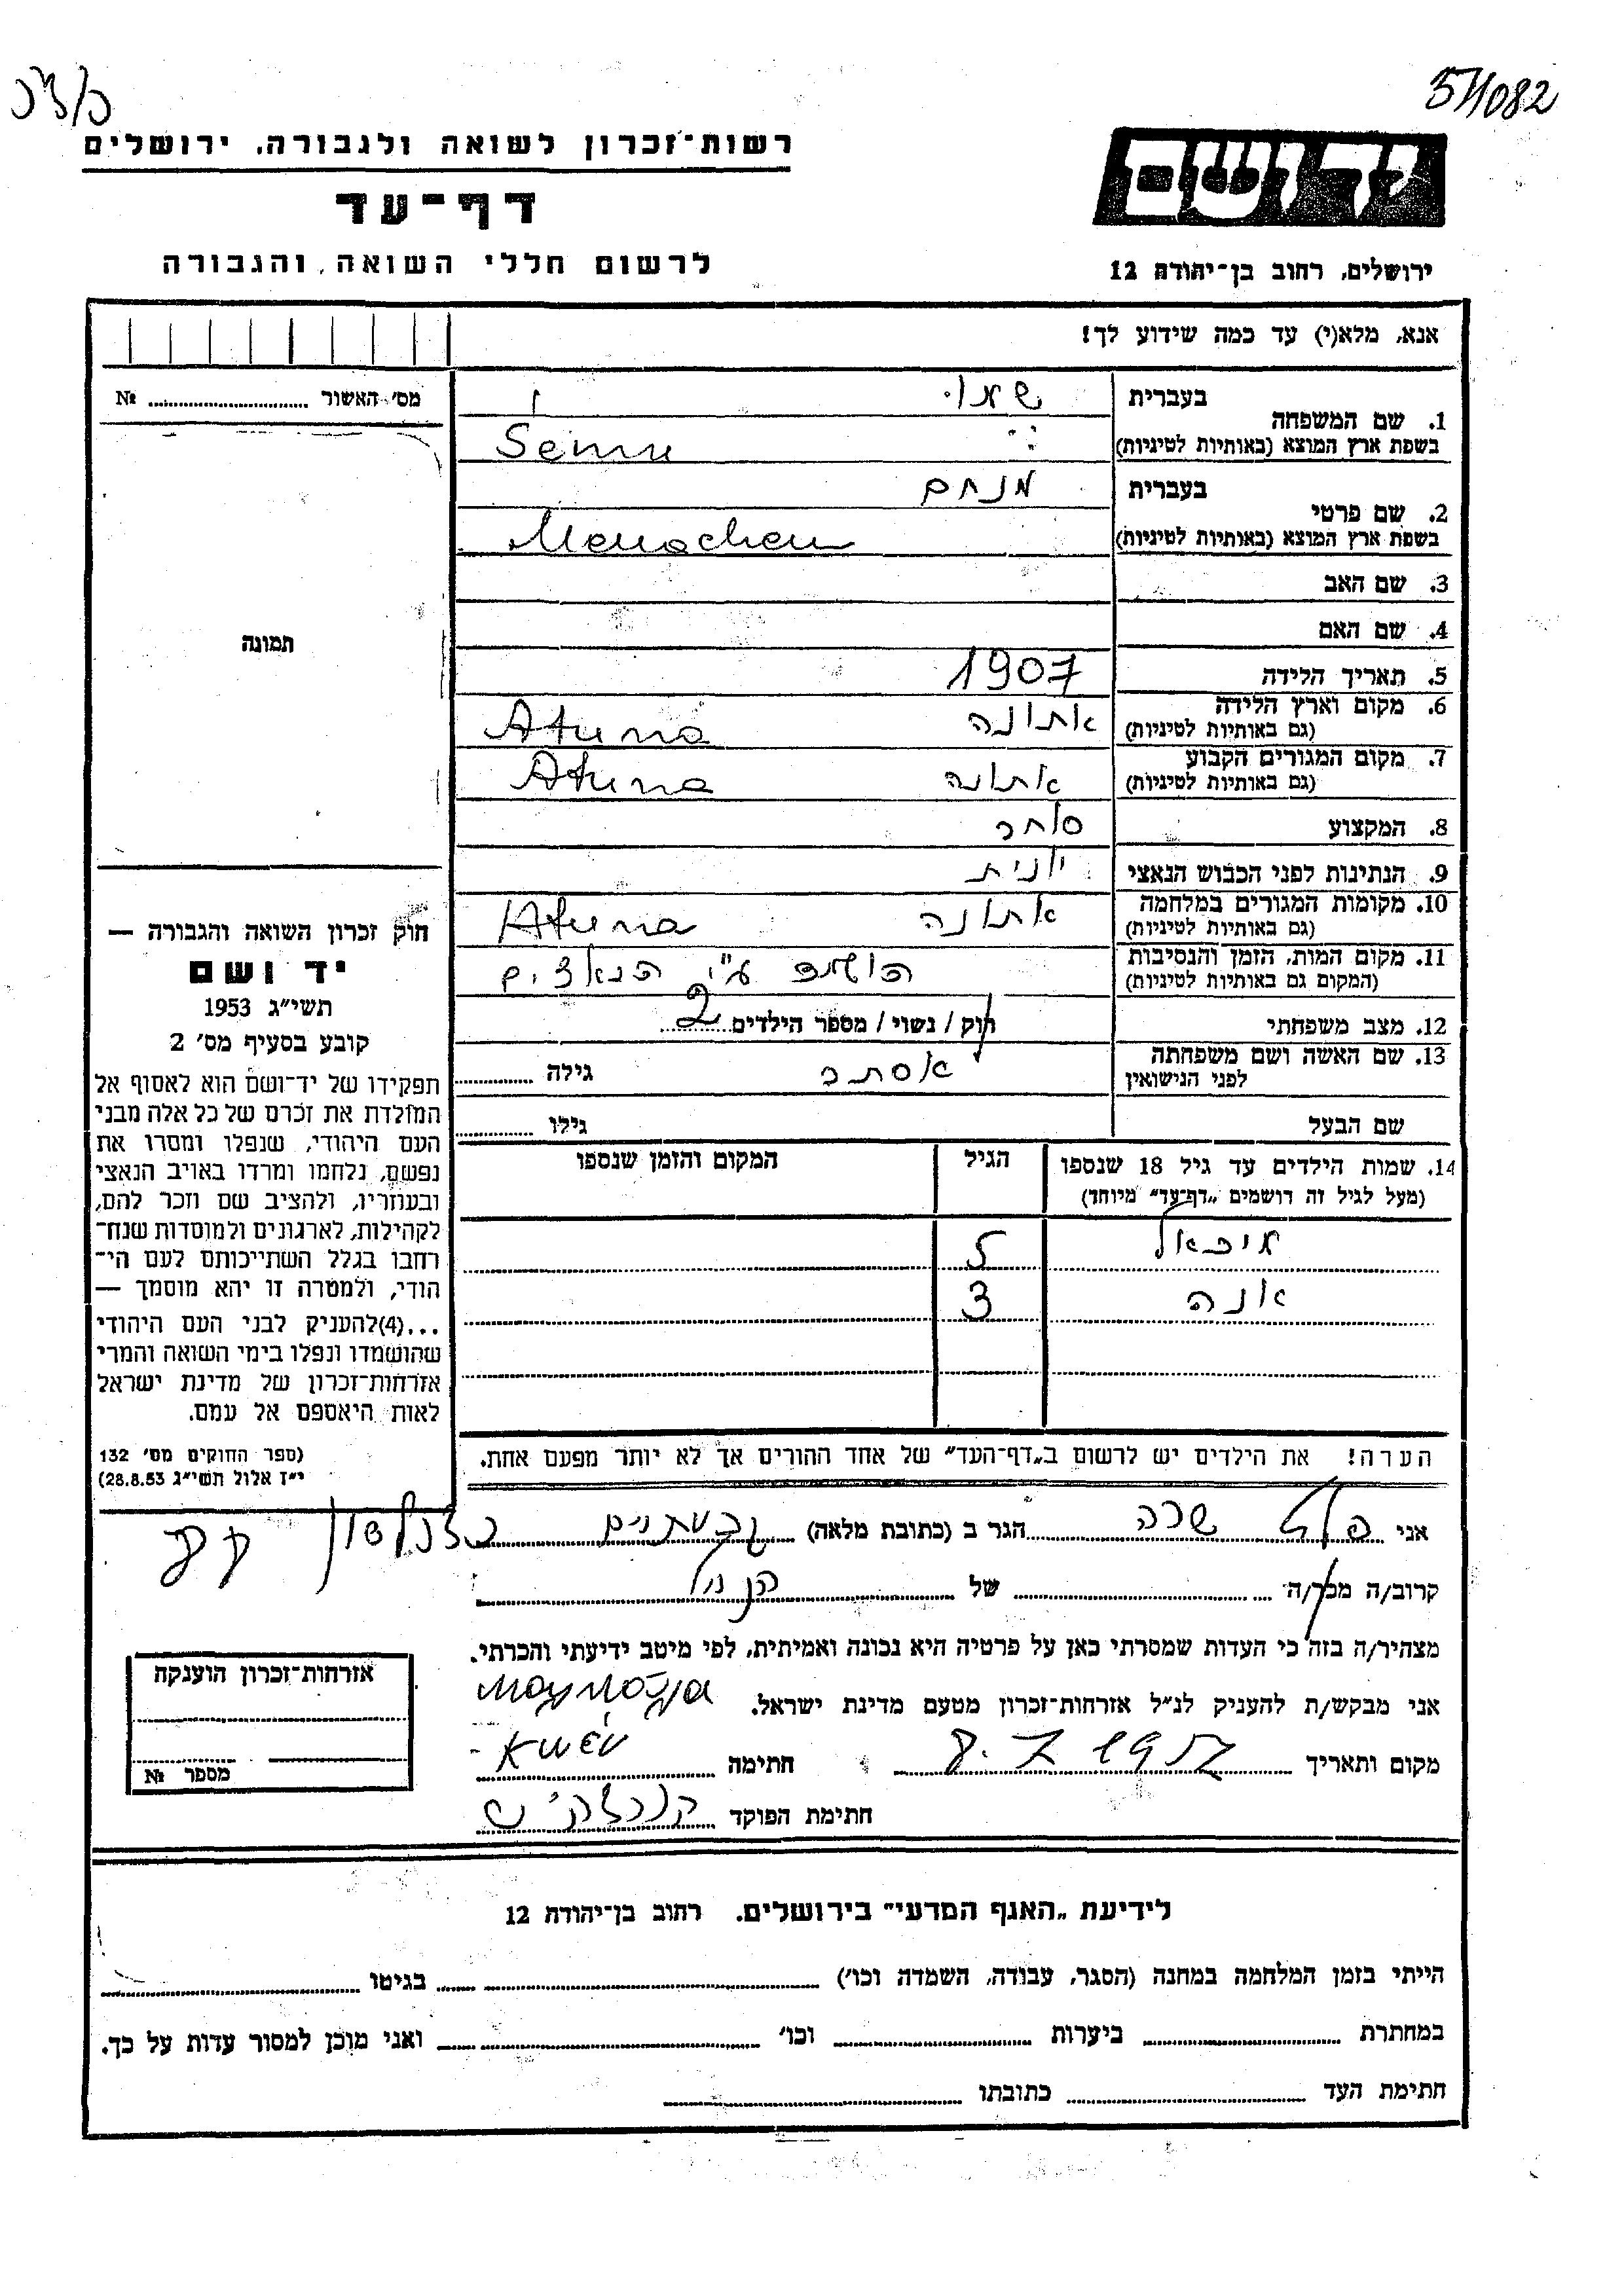 54082
רשות־זכרון לשואה ולגבורה, ירושלים
דף־עד
לרשום חללי השואה והגבורה
ידושם
ירושלים, רחוב בן־יהודה 12
אנא, מלא(י) עד כמה שידוע לך!
מס׳ האשור № ........
תמונה
1. שם המשפחה
בעברית
בשפת ארץ המוצא (באותיות לטיניות)
2. שם פרטי
בעברית מנחם
בשפת ארץ המוצא (באותיות לטיניות) Menachem
3. שם האב
4. שם האם
5. תאריך הלידה 1907
6. מקום וארץ הלידה (גם באותיות לטיניות) אתונה Atuna
7. מקום המגורים הקבוע (גם באותיות לטיניות) אתונה Atuna
8. המקצוע סוחר
9. הנתינות לפני הכבוש הנאצי יונית
10. מקומות המגורים במלחמה (גם באותיות לטיניות) אתונה Atuna
11. מקום המות, הזמן והנסיבות (המקום גם באותיות לטיניות) הושמד ע"י הנאצים
12. מצב משפחתי רוק / נשוי / מספר הילדים 2
13. שם האשה ושם משפחתה לפני הנישואין אסתר גילה ........
שם הבעל גילו ........
14. שמות הילדים עד גיל 18 שנספו
(מעל לגיל זה רושמים „דף־עד״ מיוחד)
הגיל
המקום והזמן שנספו
מיכאל 5
אנה 3
הערה! את הילדים יש לרשום ב„דף־העד״ של אחד ההורים אך לא יותר מפעם אחת.
חוק זכרון השואה והגבורה —
יד ושם
תשי״ג 1953
קובע בסעיף מס׳ 2
תפקידו של יד־ושם הוא לאסוף אל
המולדת את זכרם של כל אלה מבני
העם היהודי, שנפלו ומסרו את
נפשם, נלחמו ומרדו באויב הנאצי
ובעוזריו, ולהציב שם וזכר להם,
לקהילות, לארגונים ולמוסדות שנח־
רבו בגלל השתייכותם לעם הי־
הודי, ולמטרה זו יהא מוסמך —
...(4) להעניק לבני העם היהודי
שהושמדו ונפלו בימי השואה והמרי
אזרחות־זכרון של מדינת ישראל
לאות היאספם אל עמם.
(ספר החוקים מס׳ 132
י״ז אלול תשי״ג 28.8.53)
אני שרה הגר ב (כתובת מלאה) גבעתיים
קרוב/ה מכר/ה של הנ"ל
מצהיר/ה בזה כי העדות שמסרתי כאן על פרטיה היא נכונה ואמיתית, לפי מיטב ידיעתי והכרתי.
אני מבקש/ת להעניק לנ״ל אזרחות־זכרון מטעם מדינת ישראל.
מקום ותאריך 8.7.1957 חתימה
חתימת הפוקד
אזרחות־זכרון הוענקה
מספר №
לידיעת „האגף המדעי״ בירושלים, רחוב בן־יהודה 12
הייתי בזמן המלחמה במחנה (הסגר, עבודה, השמדה וכו׳) ........ בגיטו ........
במחתרת ........ ביערות ........ וכו׳ ........ ואני מוכן למסור עדות על כך.
חתימת העד ........ כתובתו ........